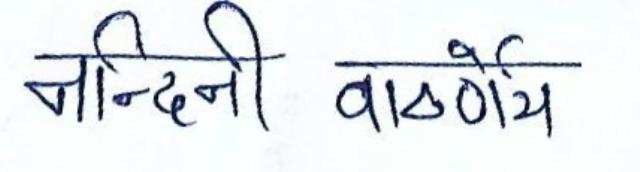 नन्दिनी वार्ष्णेय